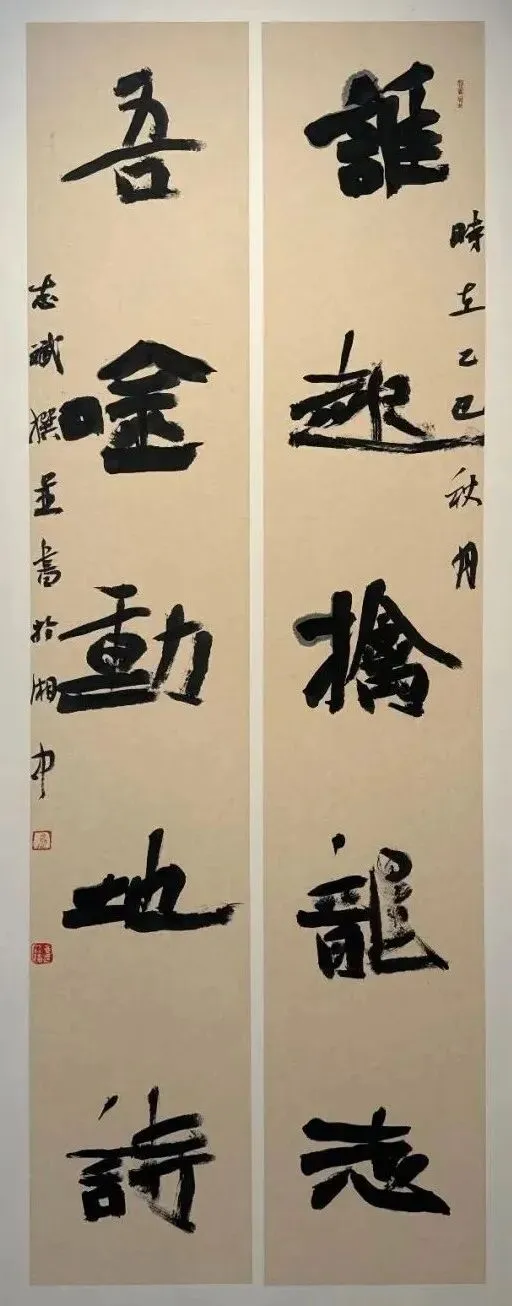 時在乙巳秋月
誰擒龍志
吾唫動地詩
志斌撰並書於湘中